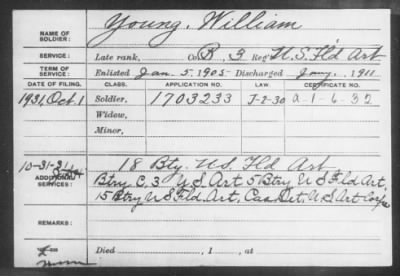 NAME OF SOLDIER: Young, William
SERVICE: Late rank, Co. B, 3 Reg't U.S. Fl'd Art
TERM OF SERVICE: Enlisted Jan 5, 1905 Discharged 1911
DATE OF FILING. CLASS. APPLICATION NO. LAW. CERTIFICATE NO.
1931, Oct. 1 Soldier, 1703233 J-2-30 A-1-6-32
Widow,
Minor,
10-31-31 18 Bty. U.S. Fld Art
ADDITIONAL SERVICES: Btry C, 3 U S Art 5 Btry U S Fld Art,
15 Btry U S Fld. Art, Cas Det, U.S. Art Corps
REMARKS:
Died , 1 , at